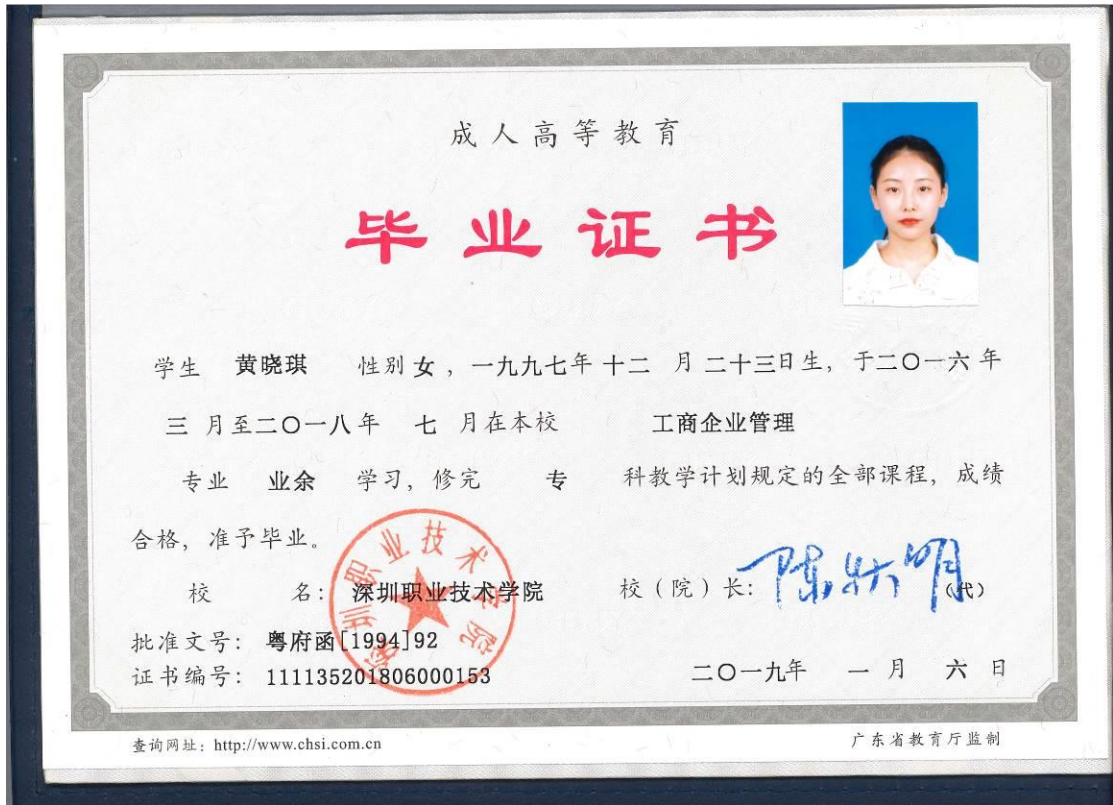 成人高等教育
毕业证书
学生 黄晓琪 性别 女 ，一九九七年 十二 月 二十三日生，于二〇一六 年
三 月至二〇一八年 七 月在本校 工商企业管理
专业 业余 学习，修完 专 科教学计划规定的全部课程，成绩
合格，准予毕业。
校 名： 深圳职业技术学院 校（院）长： 陈 明 （代）
深圳职业技术学院
批准文号： 粤府函[1994]92
证书编号： 111135201806000153 二〇一九年 一 月 六 日
查询网址：http://www.chsi.com.cn 广东省教育厅监制